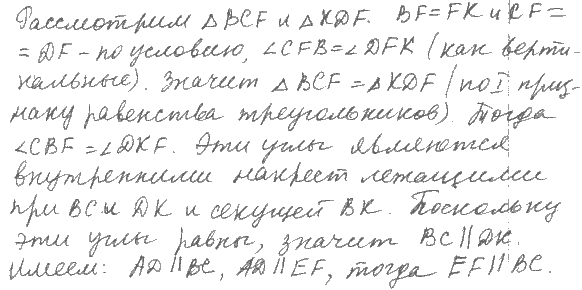 Рассмотрим △BCF и △KDF. BF=FK и CF=
=DF – по условию, ∠CFB=∠DFK (как верти-
кальные). Значит △BCF=△KDF (по I приз-
наку равенства треугольников). Тогда
∠CBF=∠DKF. Эти углы являются
внутренними накрест лежащими
при BC и DK и секущей BK. Поскольку
эти углы равны, значит BC∥DK.
Имеем: AD∥BC, AD∥EF, тогда EF∥BC.